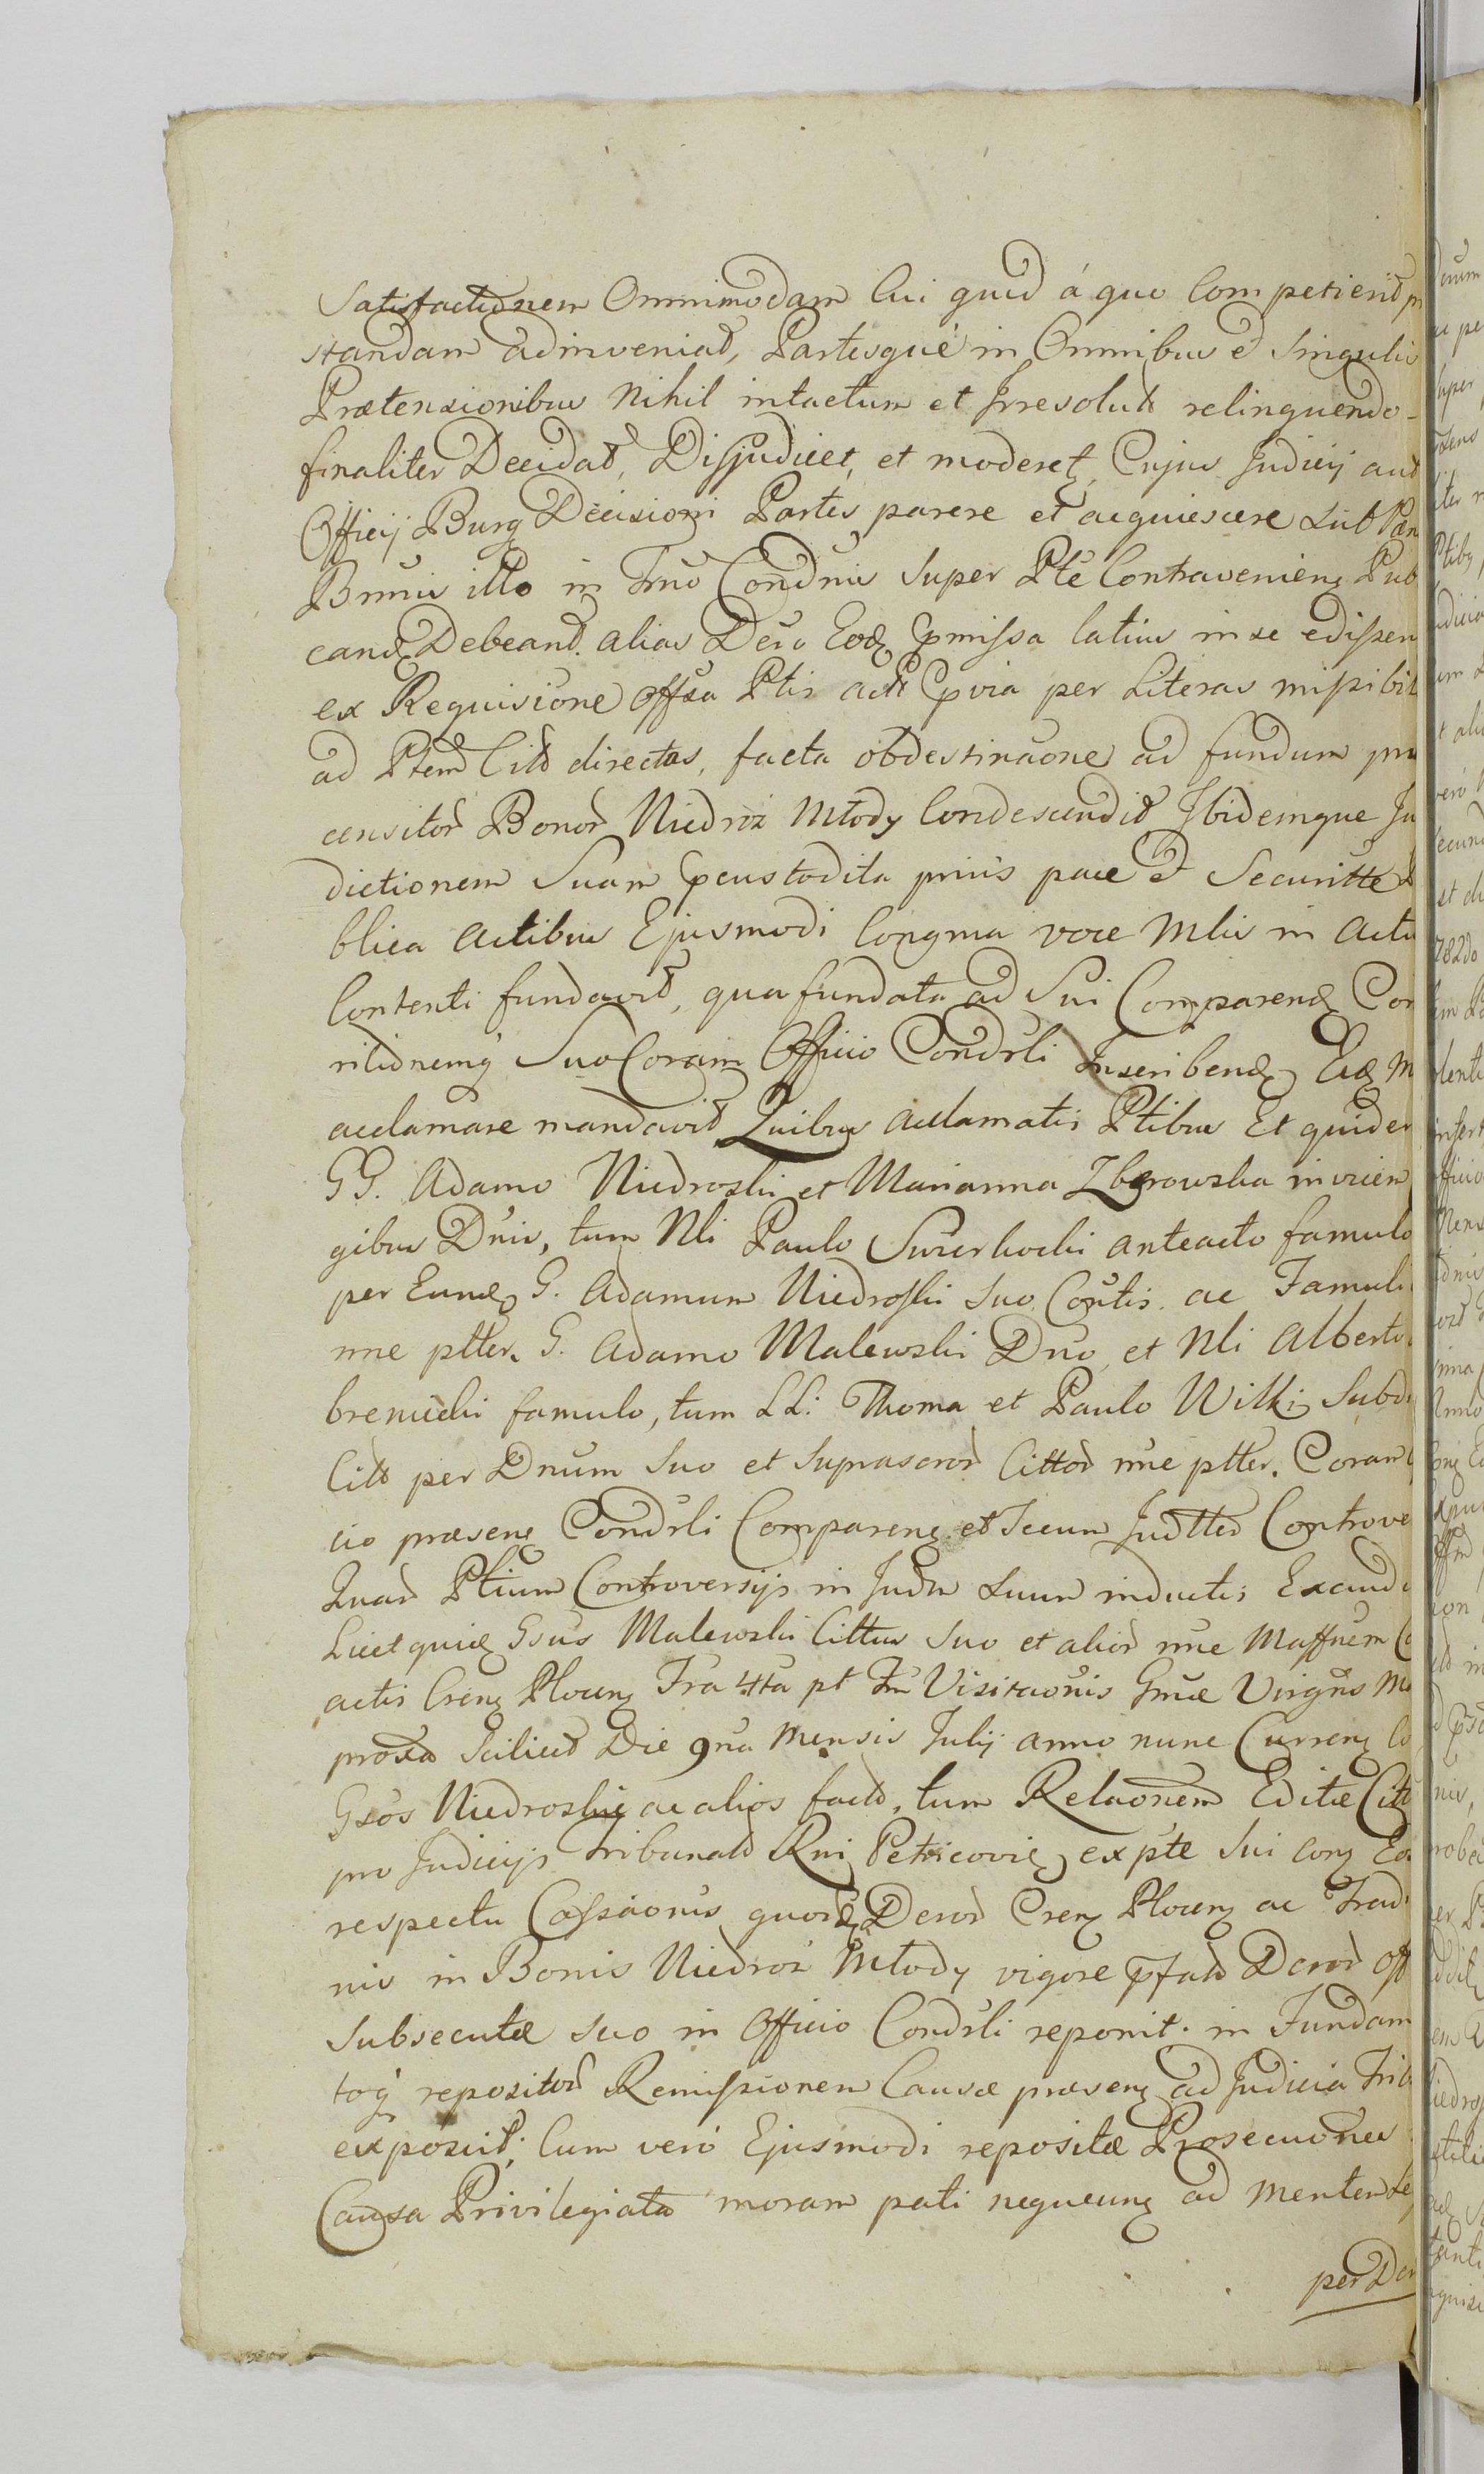 Satisfactionem Omnimodam Cui quid á quo Competierit
standam adinveniat, Partesque in Omnibus et Singulis
Prætensionibus Nihil intactum et Irresolut relinquendo
finaliter Decidat, Disjudicet, et moderet, Cujus Judicij aut
Officij Burg Decisioni Partes parere et acquiescere sub Pæn
Bnnis illo in Trno Condnis Super Pte Contravenien Pub
cand Debeant. alias Dero Eod pmissa latius in se edissen
ex Requisitione Offsa Ptis act pvia per Literas missibil
ad Ptem Citt directas, facta obdestinaone ad fundum pr
censitor Bonor Niedroż Młody Condescendit Ibidemque Ju
dictionem Suam pcustodita prius pace et Securitte
blica actibus Ejusmodi Congrna voce Mlis in actu
Contenti fundavit, qua fundata ad Sui Comparend Con
ritionemq Suo Coram Officio Condrli Inscribend Eid M
acclamare mandavit Quibus acclamatis Ptibus Et quidem
GG. Adamo Niedroski et Marianna Zberowska invicem
gibus Dnis, tum Nli Paulo Swierkocki anteacto famulo
per Eund G. Adamum Niedroski Suo Contis. ac Famuli
nne ptter. G. Adamo Malewski Dno et Nli Alberto
breniecki famulo, tum LL: Thoma et Paulo Wilki Subd
Citt per Dnum Suo et Suprascror Cittor nne ptter. Coram
cio præsen Condrli Comparen et Secum Judtter Controve
Quar Ptium Controversijs in Judm Suum inductis Exaud
Licet quid Gsus Malewski Cittus Suo et alior nne Maffnem
actis Cren Plocen Fra 4tta pt Fm Visitaonis Gmæ Virgns M
proxa Scilicet Die 9na Mensis Julij anno nunc Curren
Gsos Niedroskie ac alios fact, tum Relaonem Editæ Citt
pro Judicijs Tribunal Rni Petricovien ex pte Sui con Eos
respectu Cassaonis quor Deror Cren Plocen ac Trad
nis in Bonis Niedroż Młody vigore pfat Deror Off
Subsecutæ Suo in Officio Condrli reponit. in Fundam
toq repositor Remissionem Causæ præsen ad Judicia Trib
exposcit; Cum vero Ejusmodi repositæ Prosecuones
Causa Privilegiata moram pati nequeun ad mentem Le
per Der